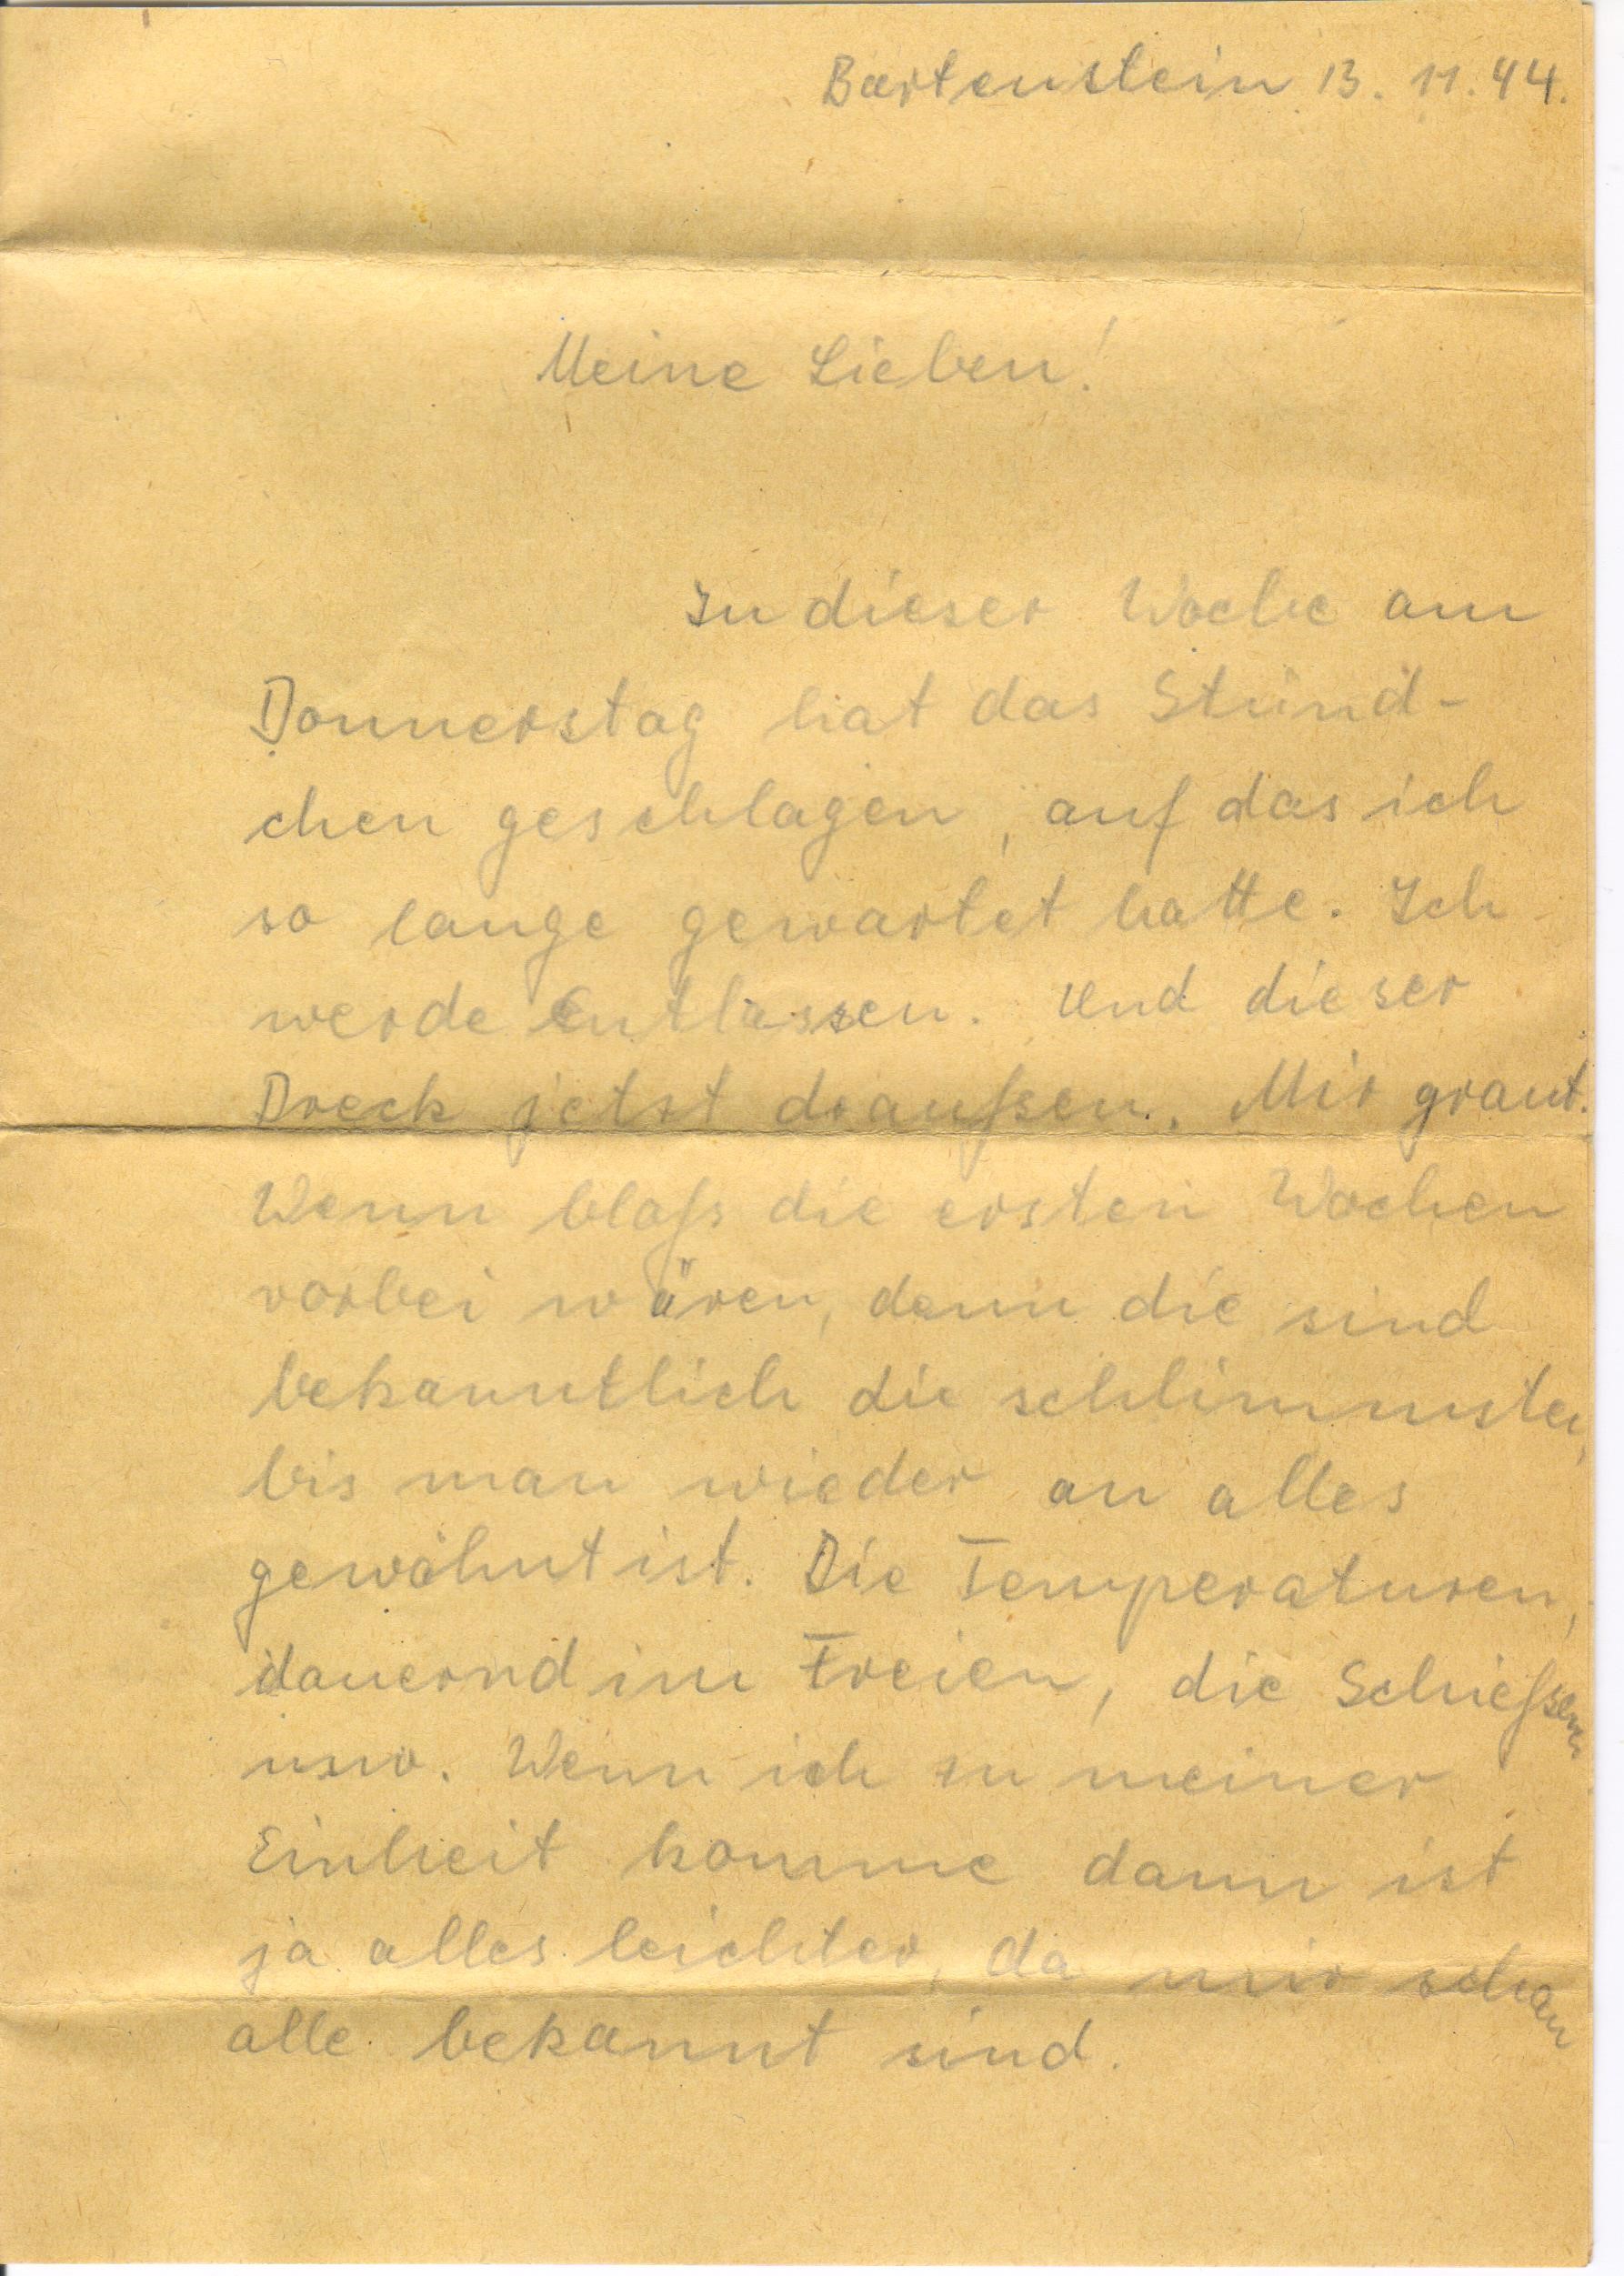 Bartenstein 13. 11. 44.
Meine Lieben!
In dieser Woche am
Donnerstag hat das Stünd-
chen geschlagen, auf das ich
so lange gewartet hatte. Ich
werde Entlassen. Und dieser
Dreck jetzt draußen. Mir graut.
Wenn bloß die ersten Wochen
vorbei wären, denn die sind
bekanntlich die schlimmsten,
bis man wieder an alles
gewöhnt ist. Die Temperaturen,
dauernd im Freien, die Schießen
usw. Wenn ich zu meiner
Einheit komme dann ist
ja alles leichter, da mir schon
alle bekannt sind.